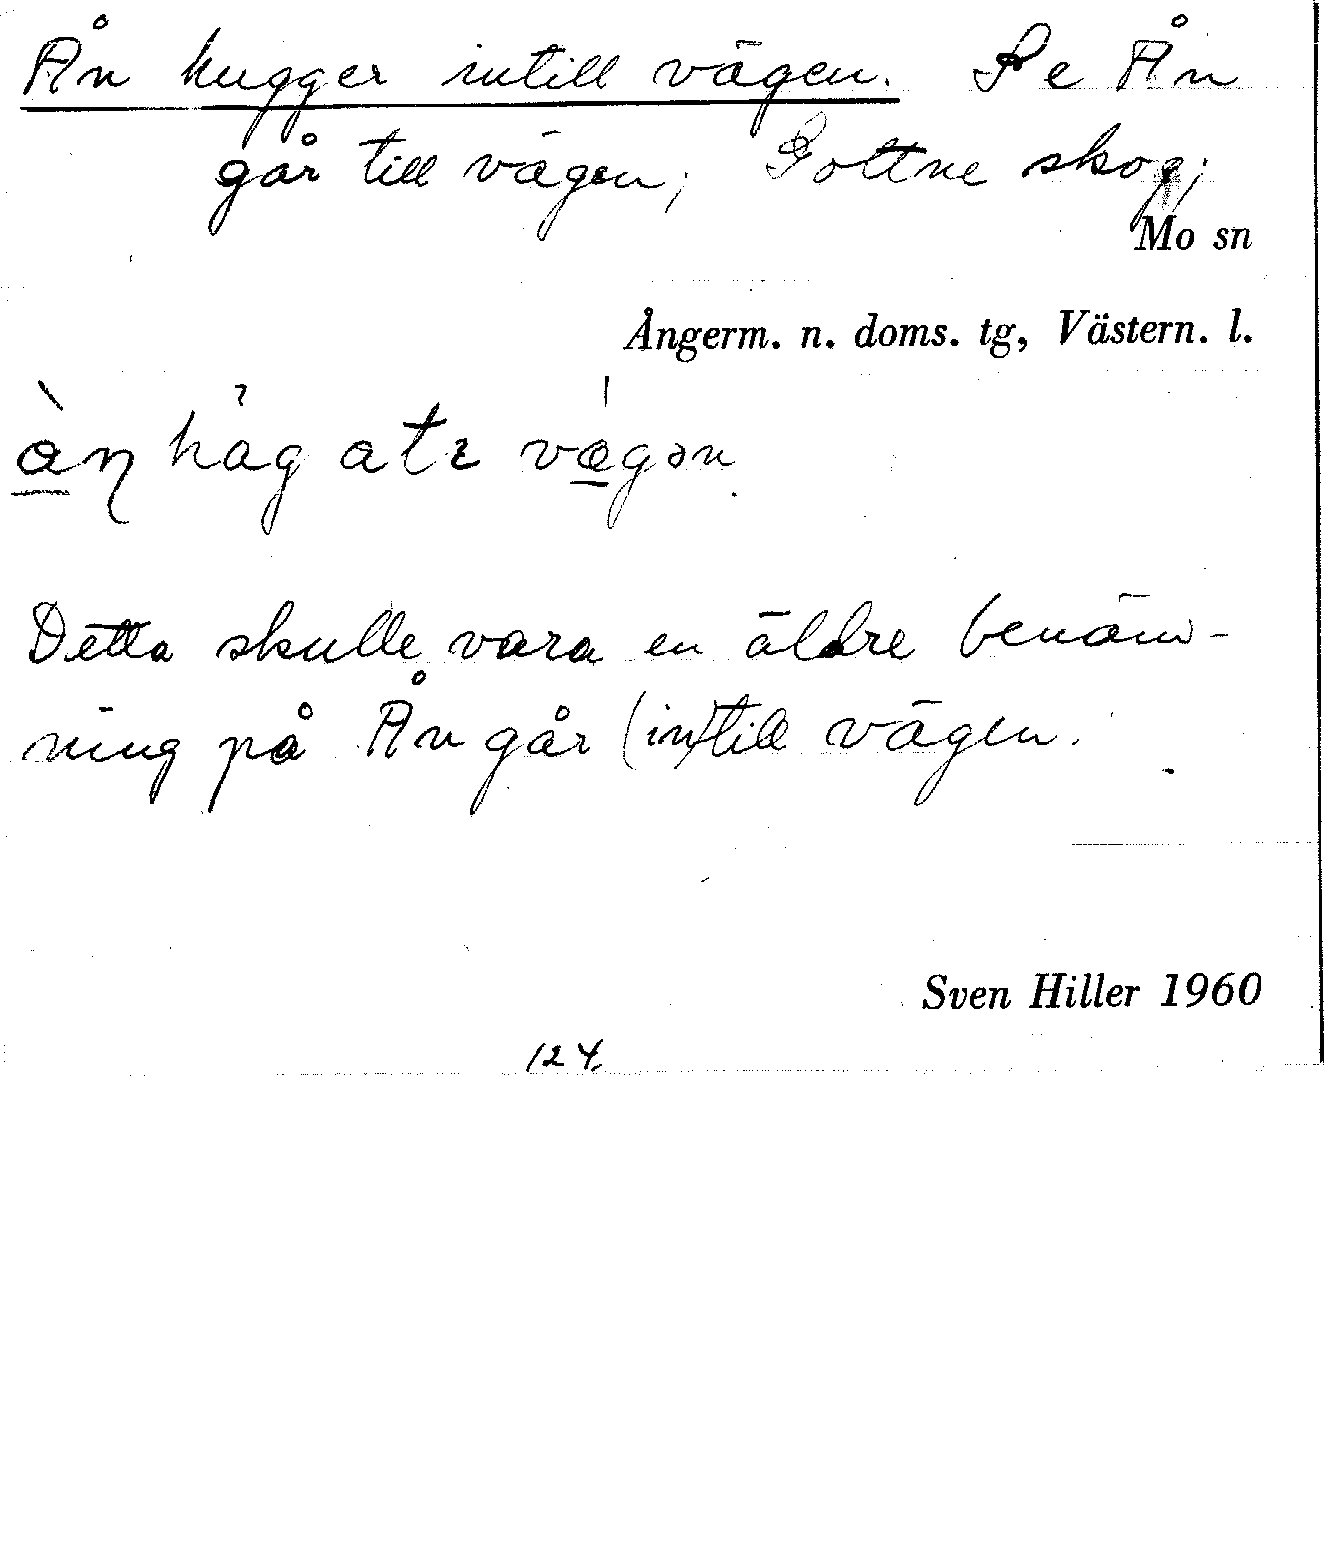 Ån hugger intill vägen. Se Ån
går till vägen; Gottne skog;
Mo sn
Ångerm. n. doms. tg, Västern. l.
vægən
Detta skulle vara en äldre benäm-
ning på Ån går (in)till vägen.
Sven Hiller 1960
124